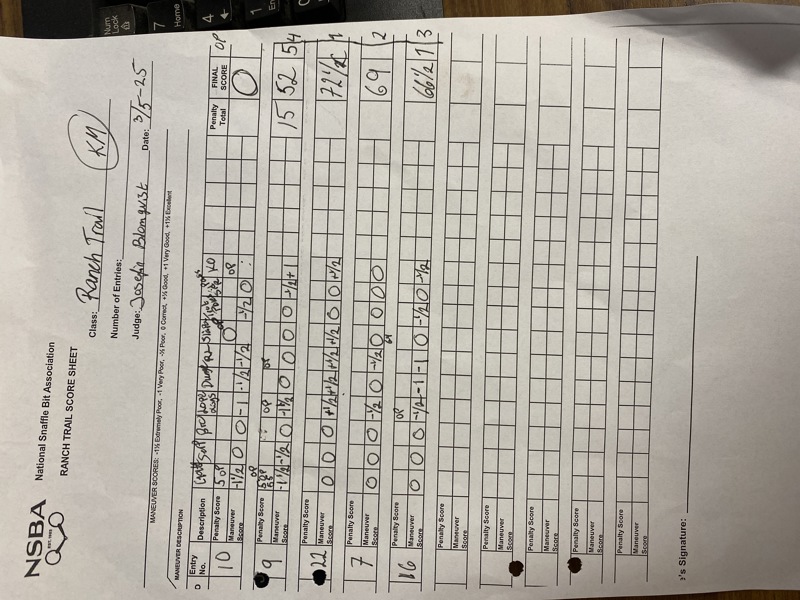 Num
Lock
7
Home
4
1
En
NSBA
EST. 1983
National Snaffle Bit Association
RANCH TRAIL SCORE SHEET
Class: Ranch Trail
KM
Number of Entries:
Judge: Joseph Blomquist Date: 3/5-25
MANEUVER SCORES: -1½ Extremely Poor, -1 Very Poor, -½ Poor, 0 Correct, +½ Good, +1 Very Good, +1½ Excellent
MANEUVER DESCRIPTION
D Entry No. Description Penalty Total FINAL SCORE OP
10 Penalty Score 5 OP OP
Maneuver Score -1/2 0 0 -1 -1/2 -1/2 0 -1/2 0 0
9 Penalty Score OP OP
Maneuver Score -1½ -1/2 0 -1½ 0 0 0 0 -1/2 +1 15 52.5 4
22 Penalty Score
Maneuver Score 0 0 0 +1/2 +1/2 +1/2 +1/2 0 0 +1/2 72½ 1
7 Penalty Score
Maneuver Score 0 0 0 -1/2 0 -1/2 0 0 0 0 69 2
16 Penalty Score OP
Maneuver Score 0 0 0 -1/2 -1 -1 0 -1/2 0 -1/2 66½ 3
Penalty Score
Maneuver Score
Penalty Score
Maneuver Score
Penalty Score
Maneuver Score
Penalty Score
Maneuver Score
's Signature: